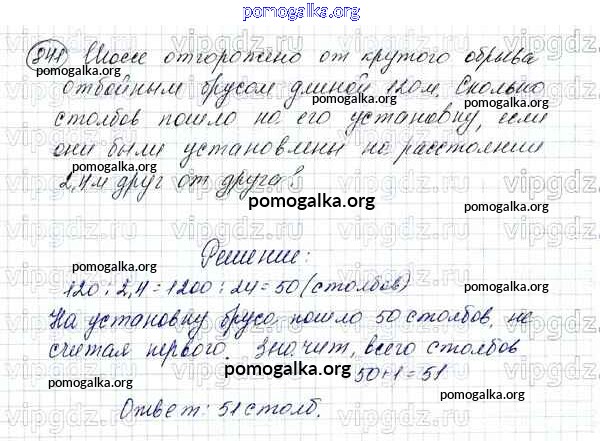 pomogalka.org
841 Шоссе отгорожено от крутого обрыва
pomogalka.org
отбойным брусом длиной 120м. Сколько
pomogalka.org pomogalka.org
столбов пошло на его установку, если
они были установлены на расстоянии
pomogalka.org pomogalka.org
2,4м друг от друга?
pomogalka.org
Решение:
pomogalka.org
120 : 2,4 = 1200 : 24 = 50 (столбов)
pomogalka.org
На установку бруса пошло 50 столбов, не
считая первого. Значит, всего столбов
pomogalka.org
50+1=51
pomogalka.org
Ответ: 51 столб.
pomogalka.org
vipgdz.com